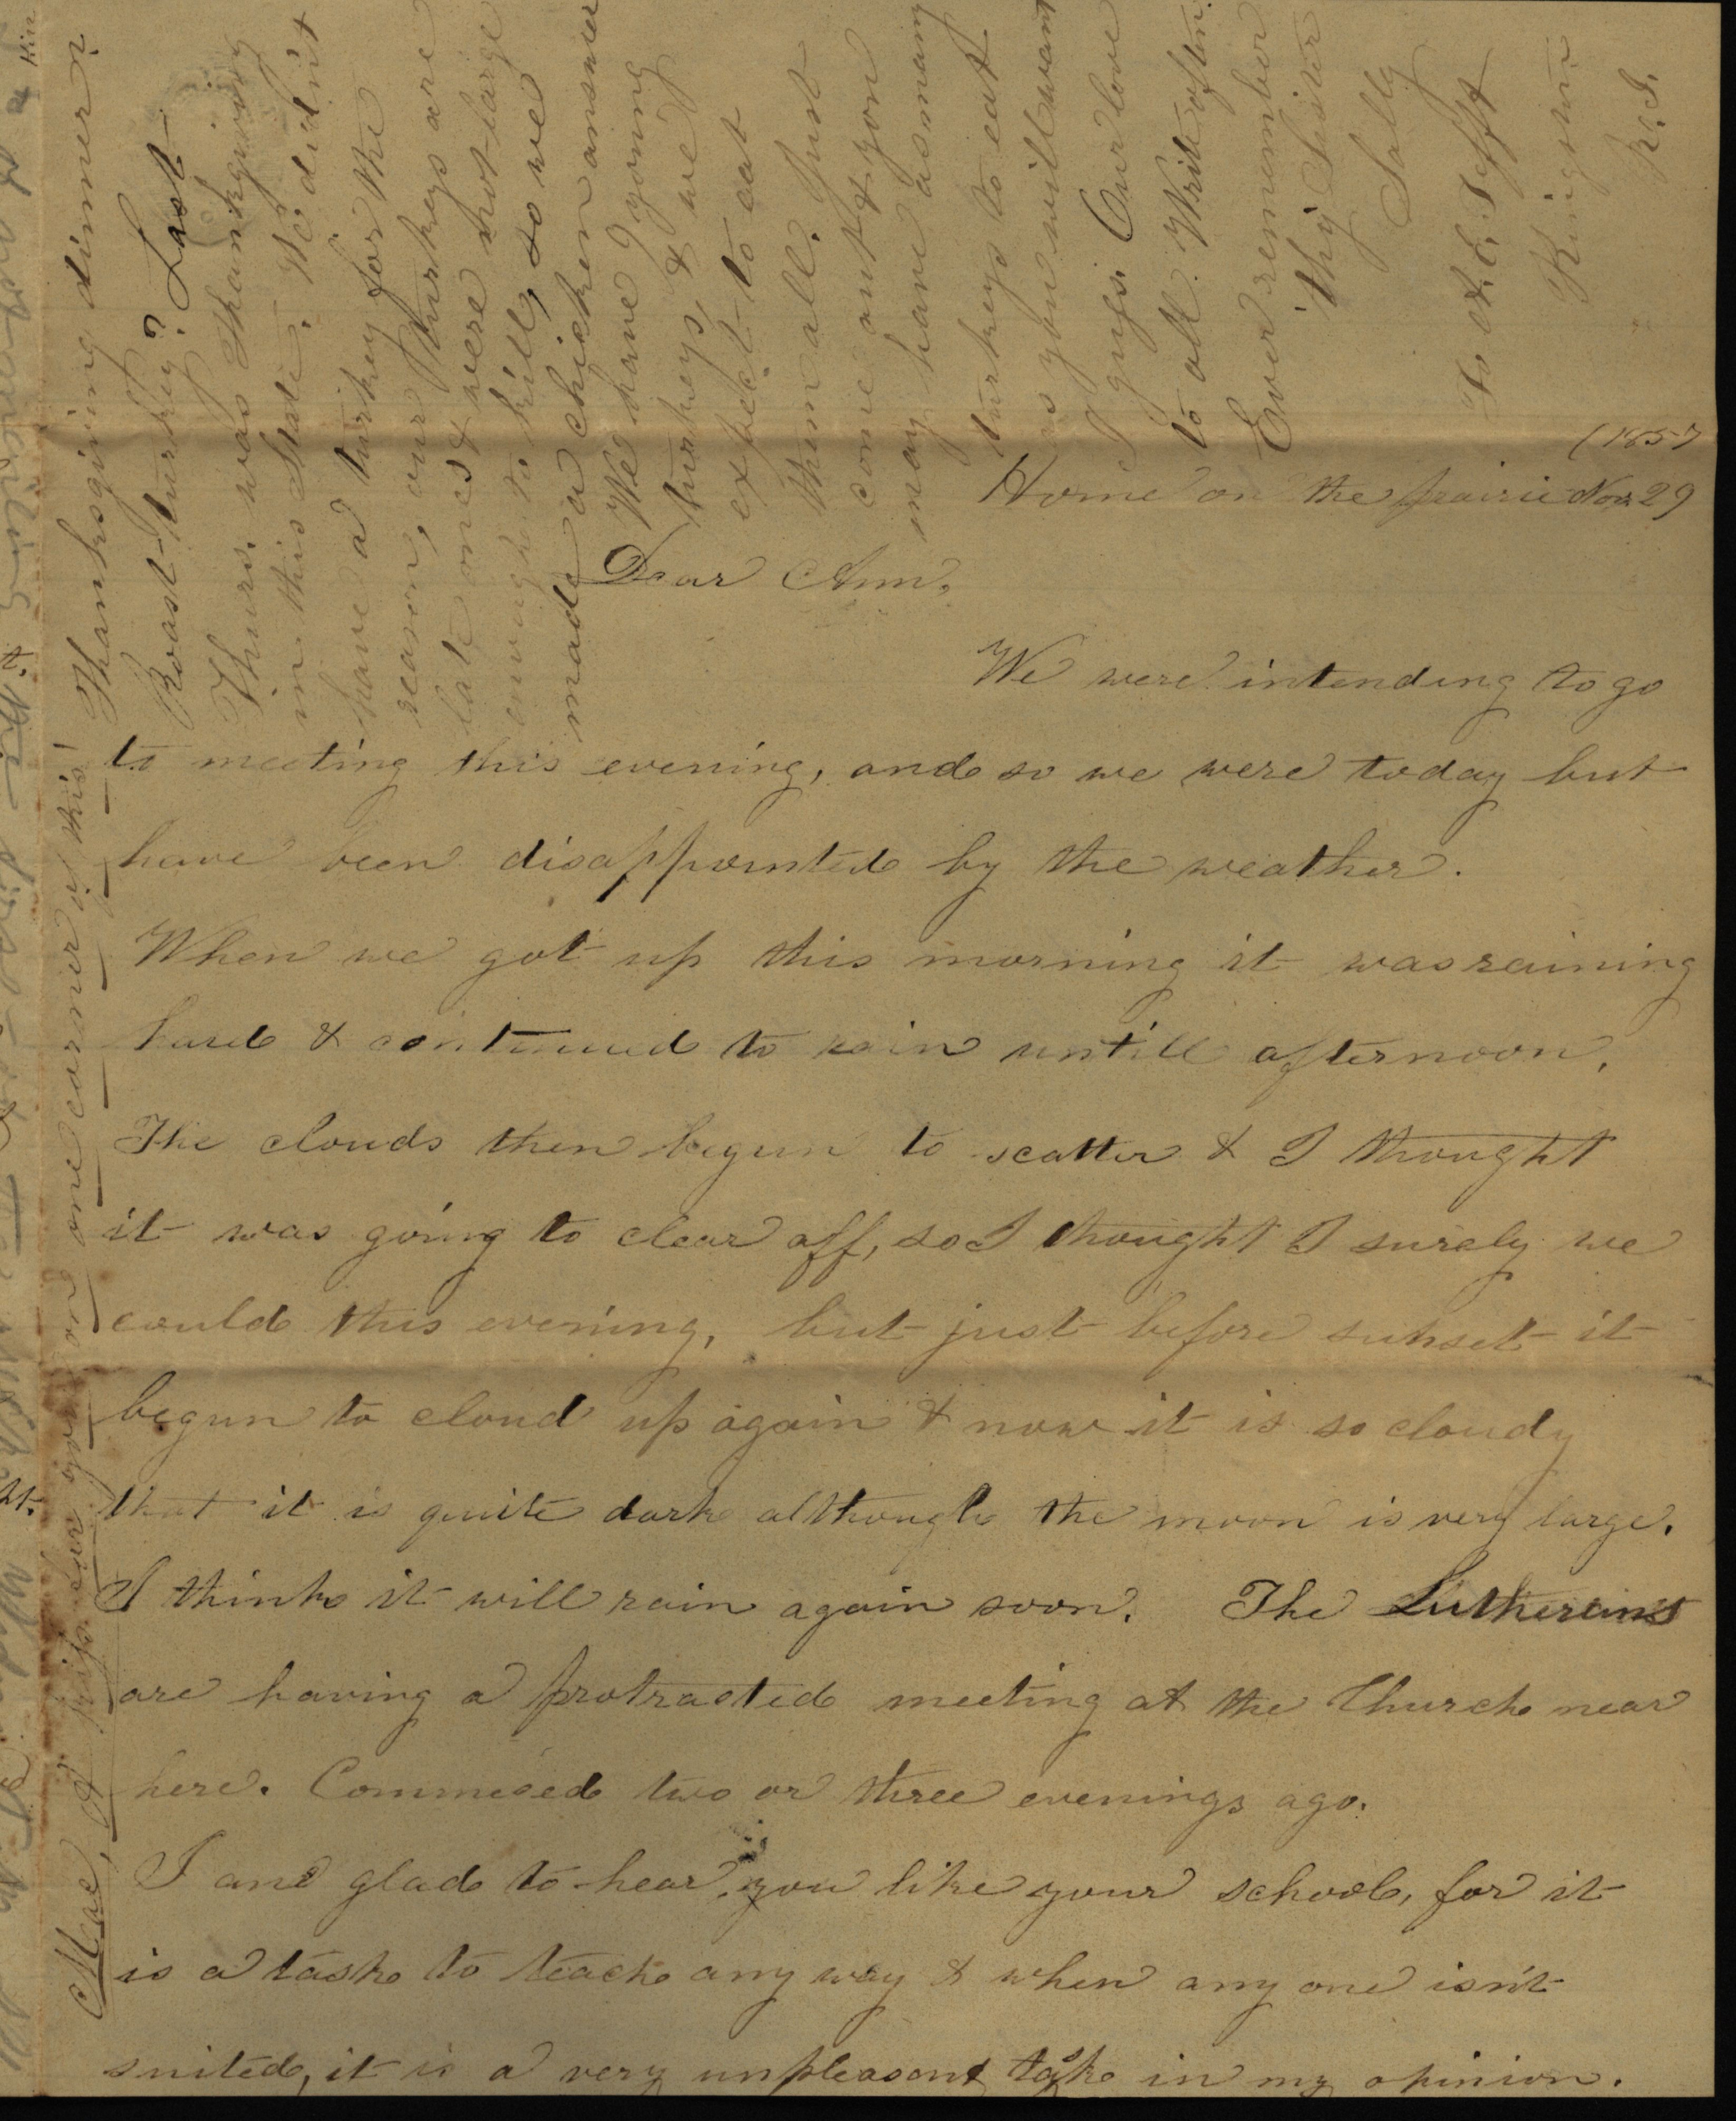 (1857
Home on the prairie Nov. 29
Dear Ann.
We were intending to go
to meeting this evening, and so we were today but
have been disappointed by the weather.
When we got up this morning it was raining
hard & continued to rain untill afternoon.
The clouds then begun to scatter & I thought
it was going to clear off, so I thought I surely we
could this evening, but just before sunset it
begun to cloud up again & now it is so cloudy
that it is quite dark although the moon is very large.
I think it will rain again soon. The Lutherans
are having a protracted meeting at the Church near
here. Commeced two or three evenings ago.
I am glad to hear you like your school, for it
is a task to teach any way & when any one isn't
suited, it is a very unpleasant task in my opinion.
Thanksgiving dinner
Roast turkey? Last
Thurs. was Thanksgiving
in this State. We didn't
have a turkey for the
reason, our turkeys are
late ones & were not large
enough to kill, so we
made a chicken answer
We have 7 young
turkeys & we
expect to eat
them all. Just
come out & you
may have as many
turkeys to eat
as you will want
I guess. Our love
to all. Write often.
Ever remember
thy Sister
Sally
To A. E. Tefft
Kingston
R. I.
on one corner is this!